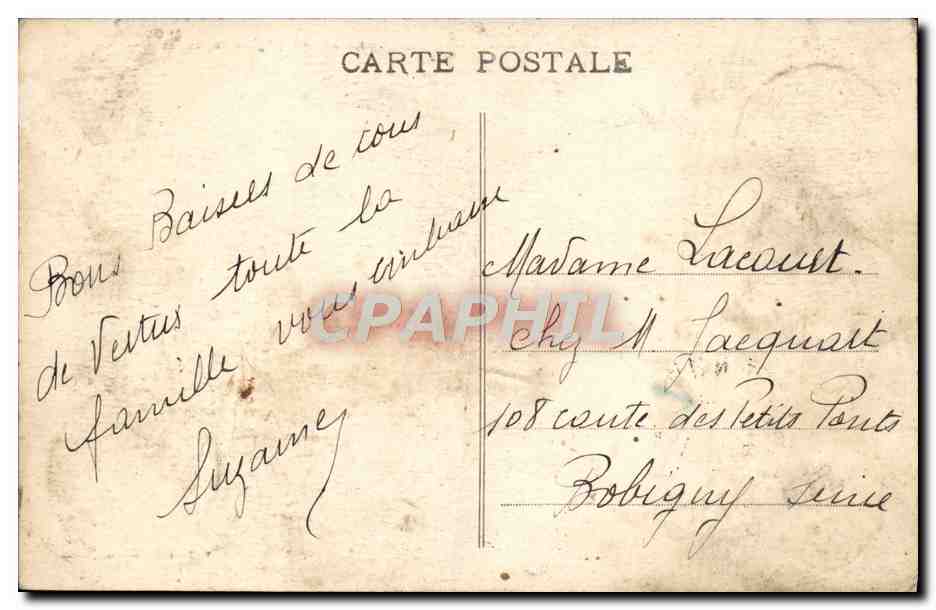 CARTE POSTALE
Bons Baisers de tous
de Vertus toute la
famille vous embrasse
Suzanne
Madame Lacouet.
Chez M. Jacquart
108 route des Petits Ponts
Bobigny Seine
CPAPHIL